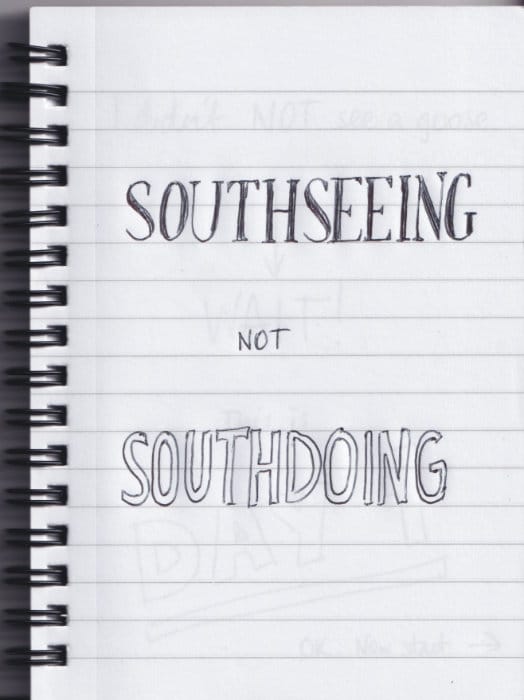 I didn't NOT see a goose
SOUTHSEEING
WAIT!
NOT
SOUTHDOING
DAY 1
OK. Now start →